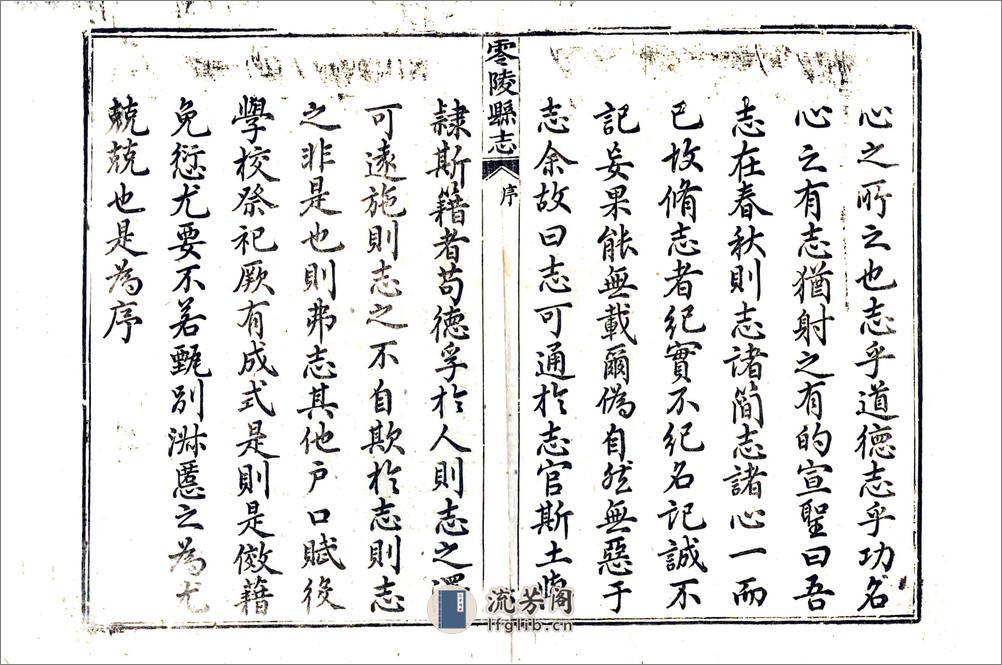 心之所之也志乎道德志乎功名
心之有志猶射之有的宣聖曰吾
志在春秋則志諸簡志諸心一而
已故脩志者紀實不紀名記誠不
記妄果能無載爾偽自然無惡于
志余故曰志可通於志官斯土
零陵縣志
序
隷斯籍者苟德孚於人則志之澤
可遠施則志之不自欺於志則志
之非是也則弗志其他户口賦役
學校祭祀厥有成式是則是傚藉
免愆尤要不若甄别淋慝之為尤
兢兢也是為序
流芳阁
lfglib.cn